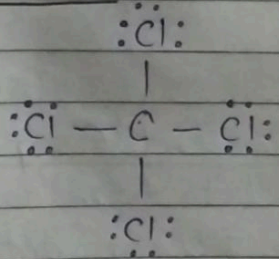 :Cl:
|
:Cl — C — Cl:
|
:Cl: